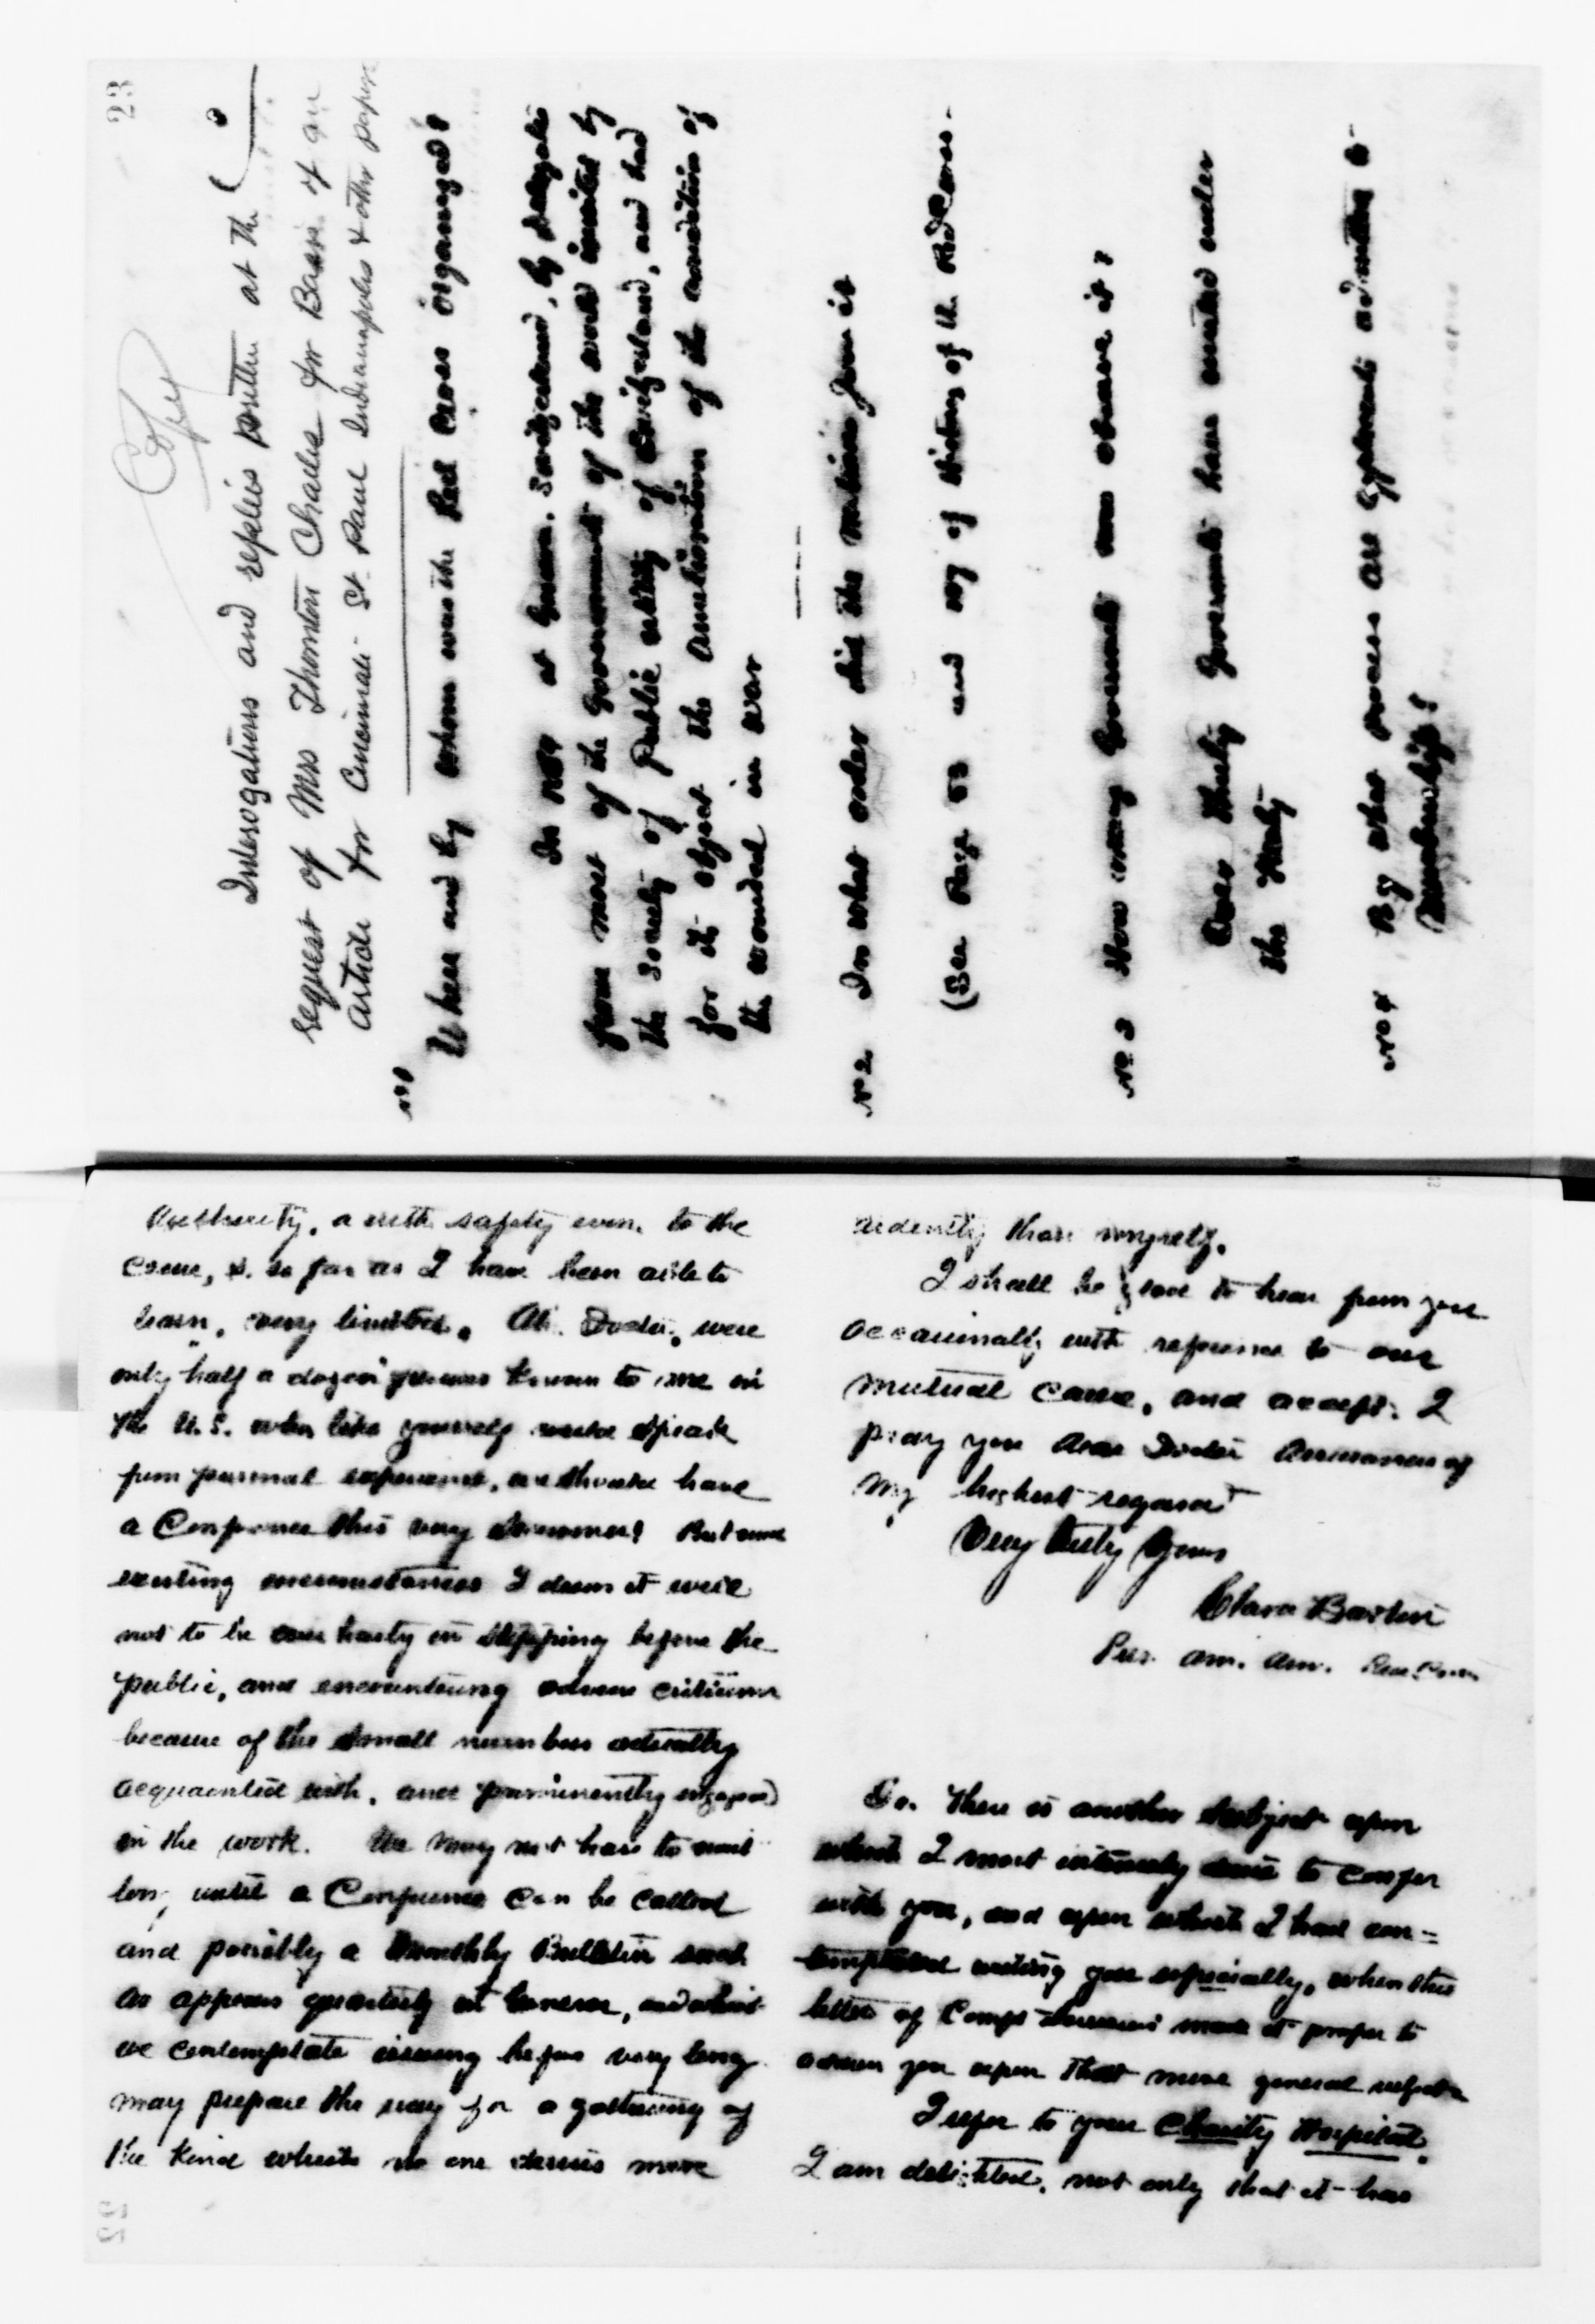 23
Copy
Interogations and replies written at the
request of Mrs Thornton Charles for Basis of an
article for Cincinnati St. Paul Indianapolis & other papers
No 1
When and by whom was the Red Cross organized?
In at Geneva. Switzerland, by delegates
from most of the Governments of the world invited by
the Society of Public utility of Switzerland, and had
for its object the amelioration of the condition of
the wounded in war
No 2 In what order did the nations join it
(See Page 53 and of History of the Red Cross.
No 3 How many Governments now observe it?
Over thirty Governments have united under
the Treaty
No 4 By what process are applicants admitted to
membership?
Authority, a with safety even to the
cause, is so far as I have been able to
learn, very limited. Ah. Doctor, were
only half a dozen persons known to me in
the U.S. who like yourself could speak
from personal experience, we should have
a Conference this very summer! But under
existing circumstances I deem it well
not to be over hasty in stepping before the
public, and encountering adverse criticism
because of the small number actually
acquainted with, and prominently engaged
in the work. We may not have to wait
long until a Conference can be called
and possibly a Monthly Bulletin such
as appears quarterly at Geneva, and which
we contemplate issuing before very long
may prepare the way for a gathering of
the kind which no one desires more
ardently than myself.
I shall be glad to hear from you
occasionally with reference to our
mutual cause, and accept, I
pray you dear Doctor assurances of
my highest regard
Very truly yours
Clara Barton
Pres. am. ass. Red Cross
There is another subject upon
which I most intensely desire to confer
with you, and upon which I had con=
templated writing you especially, when this
letter of made it proper to
address you upon that more general subject
I refer to your Charity Hospital.
I am delighted, not only that it has
22